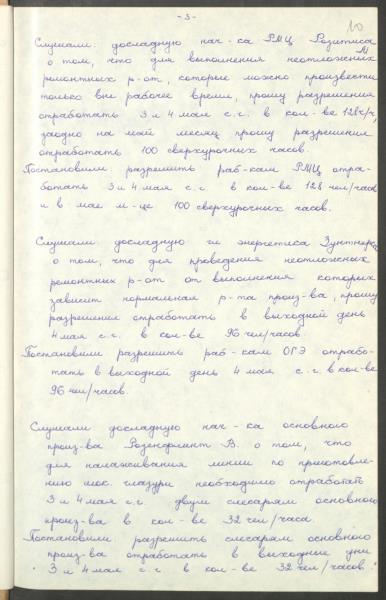 -3-
10
Слушали: докладную нач-ка РМЦ Розитиса М
о том, что для выполнения неотложных
ремонтных р-от, которые можно произвести
только вне рабочее время, прошу разрешения
отработать 3 и 4 мая с.г. в кол-ве 128 ч/ч,
заодно на май месяц прошу разрешения
отработать 100 сверхурочных часов.
Постановили: разрешить раб-кам РМЦ отра-
ботать 3 и 4 мая с.г. в кол-ве 128 чел/часов
и в мае м-це 100 сверхурочных часов.
Слушали докладную гл энергетика Зунтнера
о том, что для проведения неотложных
ремонтных р-от от выполнения которых
зависит нормальная р-та произ-ва, прошу
разрешения отработать в выходной день
4 мая с.г. в кол-ве 96 чел/часов.
Постановили разрешить раб-кам ОГЭ отрабо-
тать в выходной день 4 мая с.г. в кол-ве
96 чел/часов.
Слушали докладную нач-ка основного
произ-ва В. о том, что
для налаживания линии по приготовле-
нию шок. глазури необходимо отработать
3 и 4 мая с.г. двум слесарям основного
произ-ва в кол-ве 32 чел/часа.
Постановили разрешить слесарям основного
произ-ва отработать в выходные дни
3 и 4 мая с.г. в кол-ве 32 чел/часов.